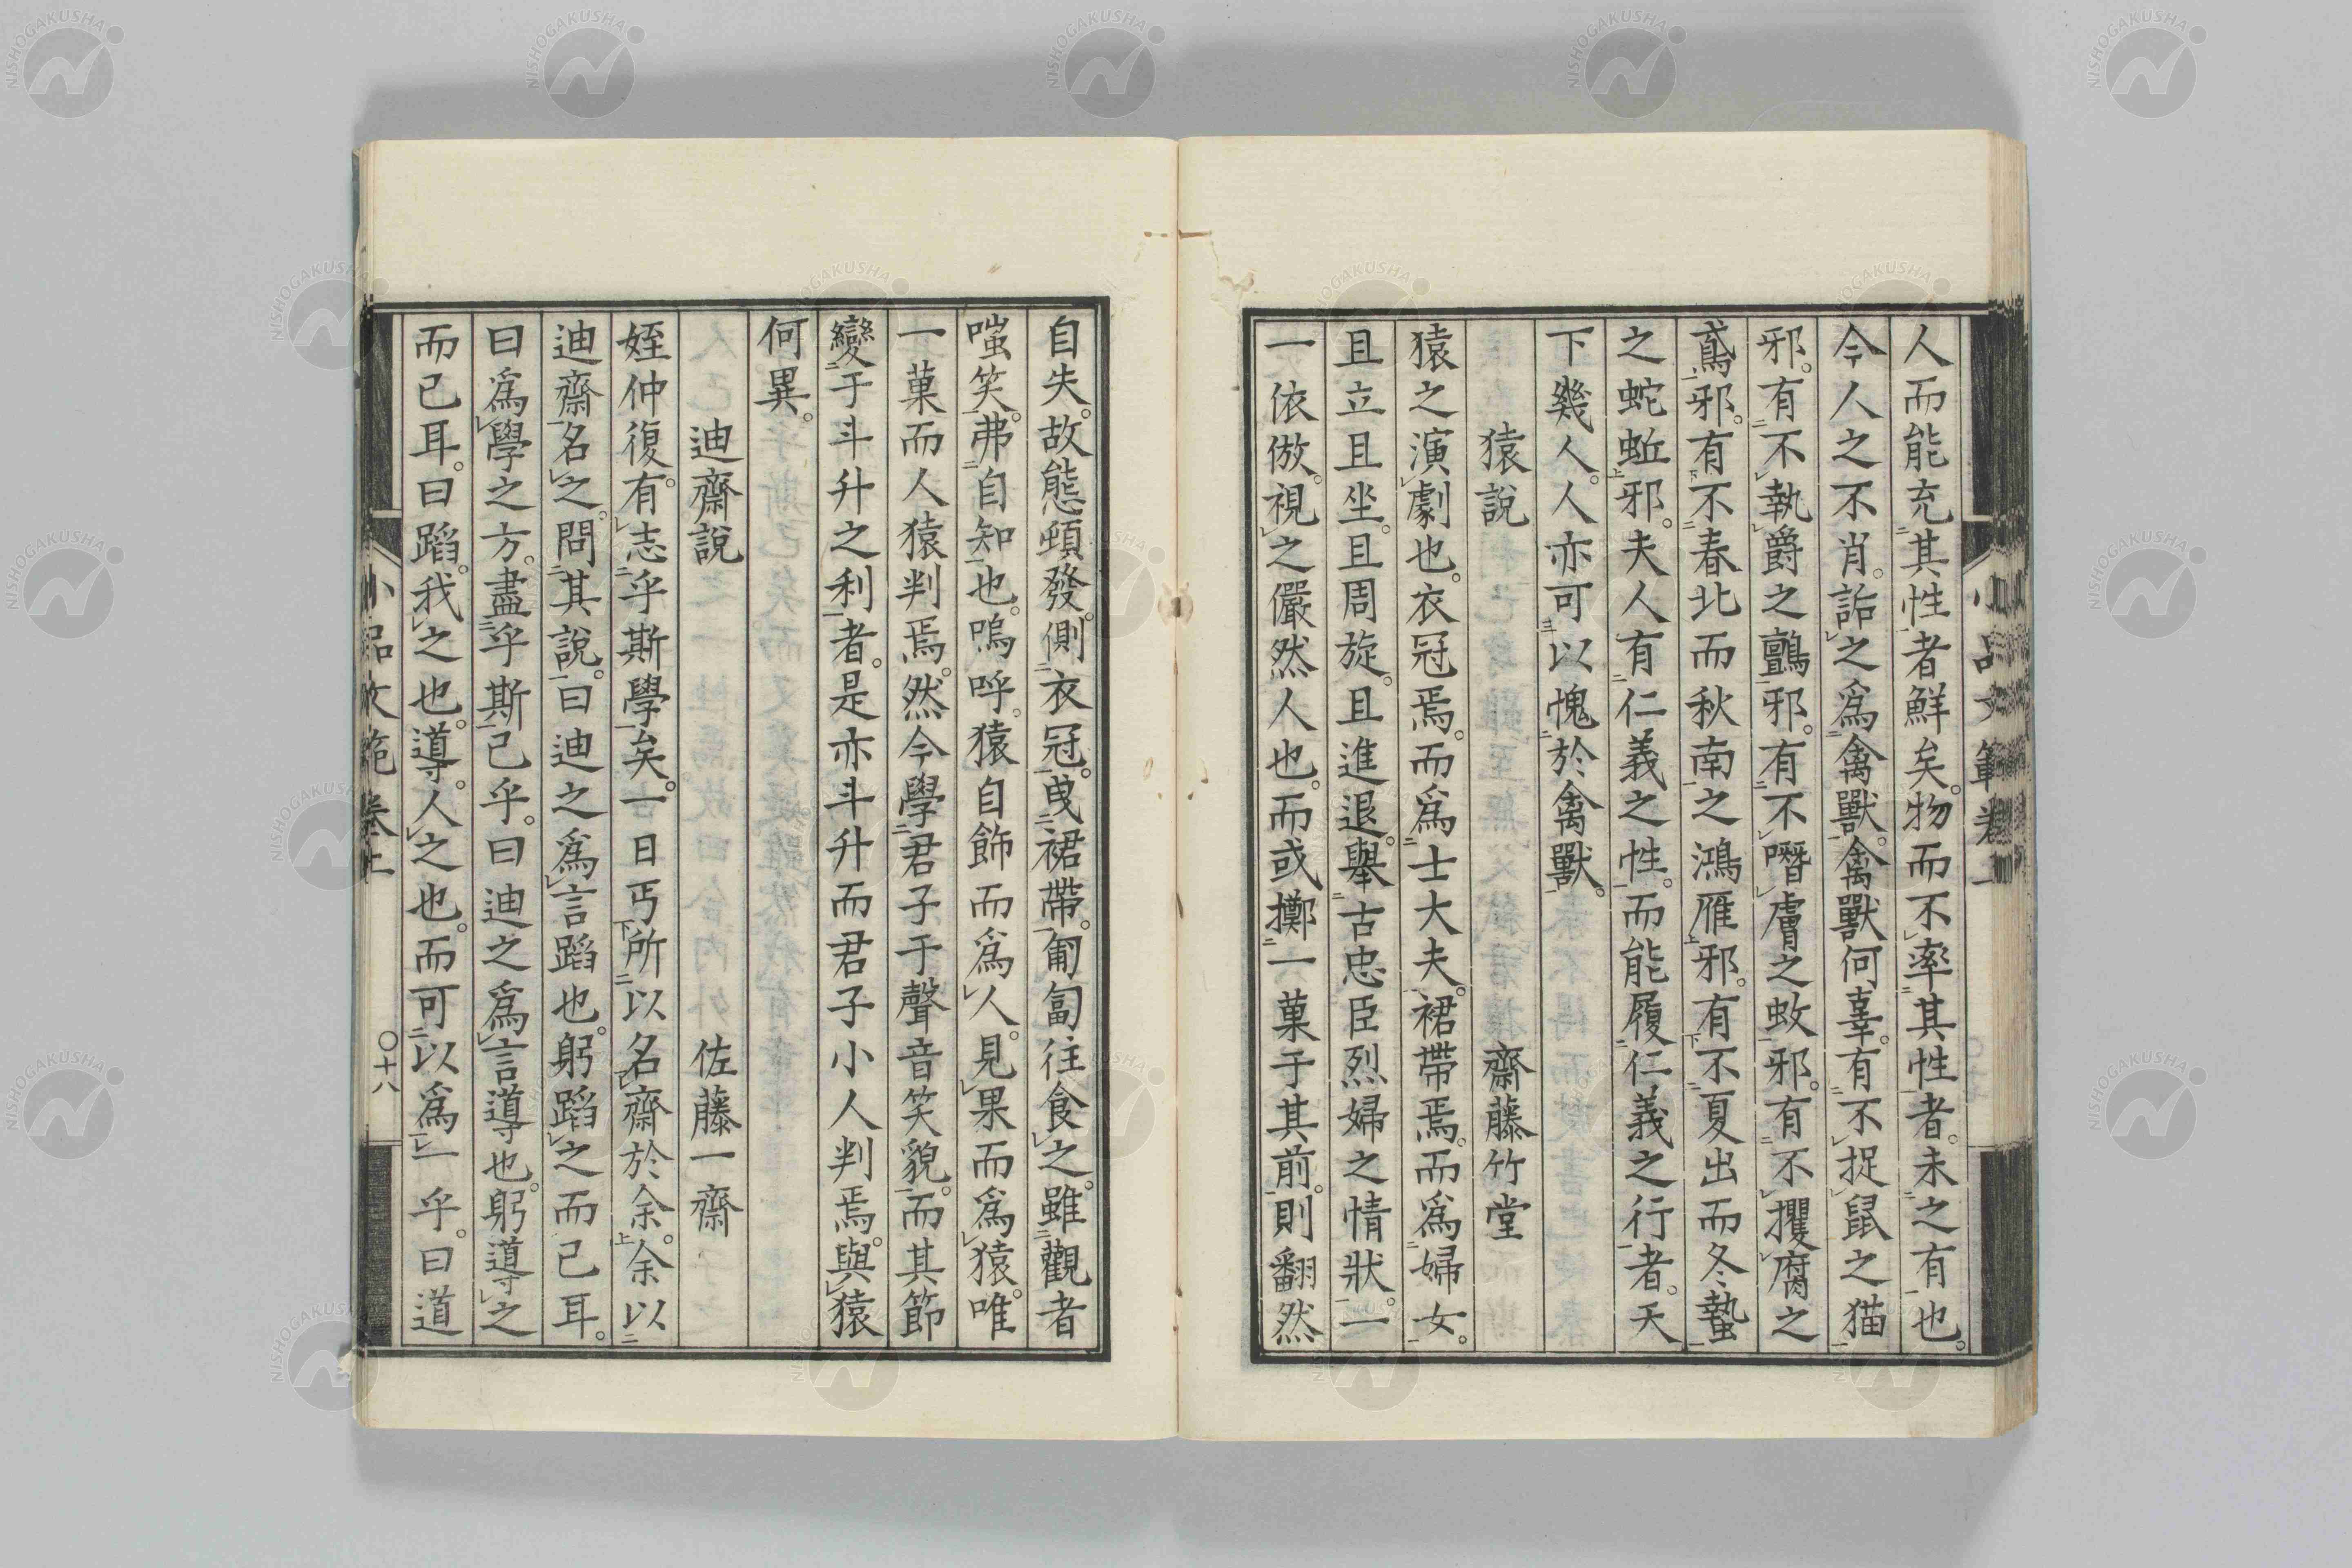 人而能充其性者鮮矣。物而不率其性者。未之有也。
今人之不肖。詬之爲禽獸。禽獸何辜。有不捉鼠之猫
邪。有不執爵之鸇邪。有不噆膚之蚊邪。有不攫腐之
鳶邪。有不春北而秋南之鴻雁邪。有不夏出而冬蟄
之蛇蚯邪。夫人有仁義之性。而能履仁義之行者。天
下幾人。人亦可以愧於禽獸。
猿說 齋藤竹堂
猿之演劇也。衣冠焉。而爲士大夫。裙帶焉。而爲婦女。
且立且坐。且周旋。且進退。舉古忠臣烈婦之情狀。一
一依倣。視之儼然人也。而或擲一菓于其前。則翻然
自失。故態頓發。側衣冠。曳裙帶。匍匐往食之。雖觀者
嗤笑。弗自知也。嗚呼。猿自飾而爲人。見果而爲猿。唯
一菓而人猿判焉。然今學君子于聲音笑貌。而其節
變于斗升之利者。是亦斗升而君子小人判焉。與猿
何異。
迪齋說 佐藤一齋
姪仲復。有志乎斯學矣。一日丐所以名齋於余。余以
迪齋名之。問其說。曰迪之爲言蹈也。躬蹈之而已耳。
曰爲學之方。盡乎斯已乎。曰迪之爲言導也。躬導之
而已耳。曰蹈。我之也。導。人之也。而可以爲一乎。曰道
小品文範卷上 〇十八
NISHOGAKUSHA